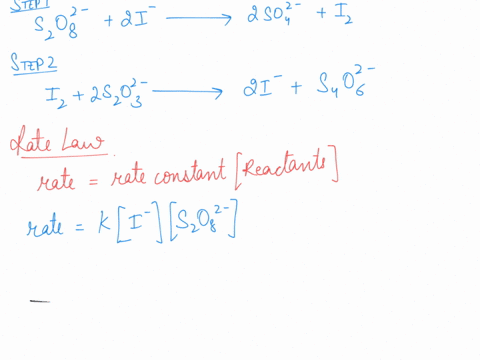 STEP1
S₂O₈²⁻ + 2I⁻ ⟶ 2SO₄²⁻ + I₂
STEP2
I₂ + 2S₂O₃²⁻ ⟶ 2I⁻ + S₄O₆²⁻
Rate Law
rate = rate constant [Reactants]
rate = K[I⁻][S₂O₈²⁻]